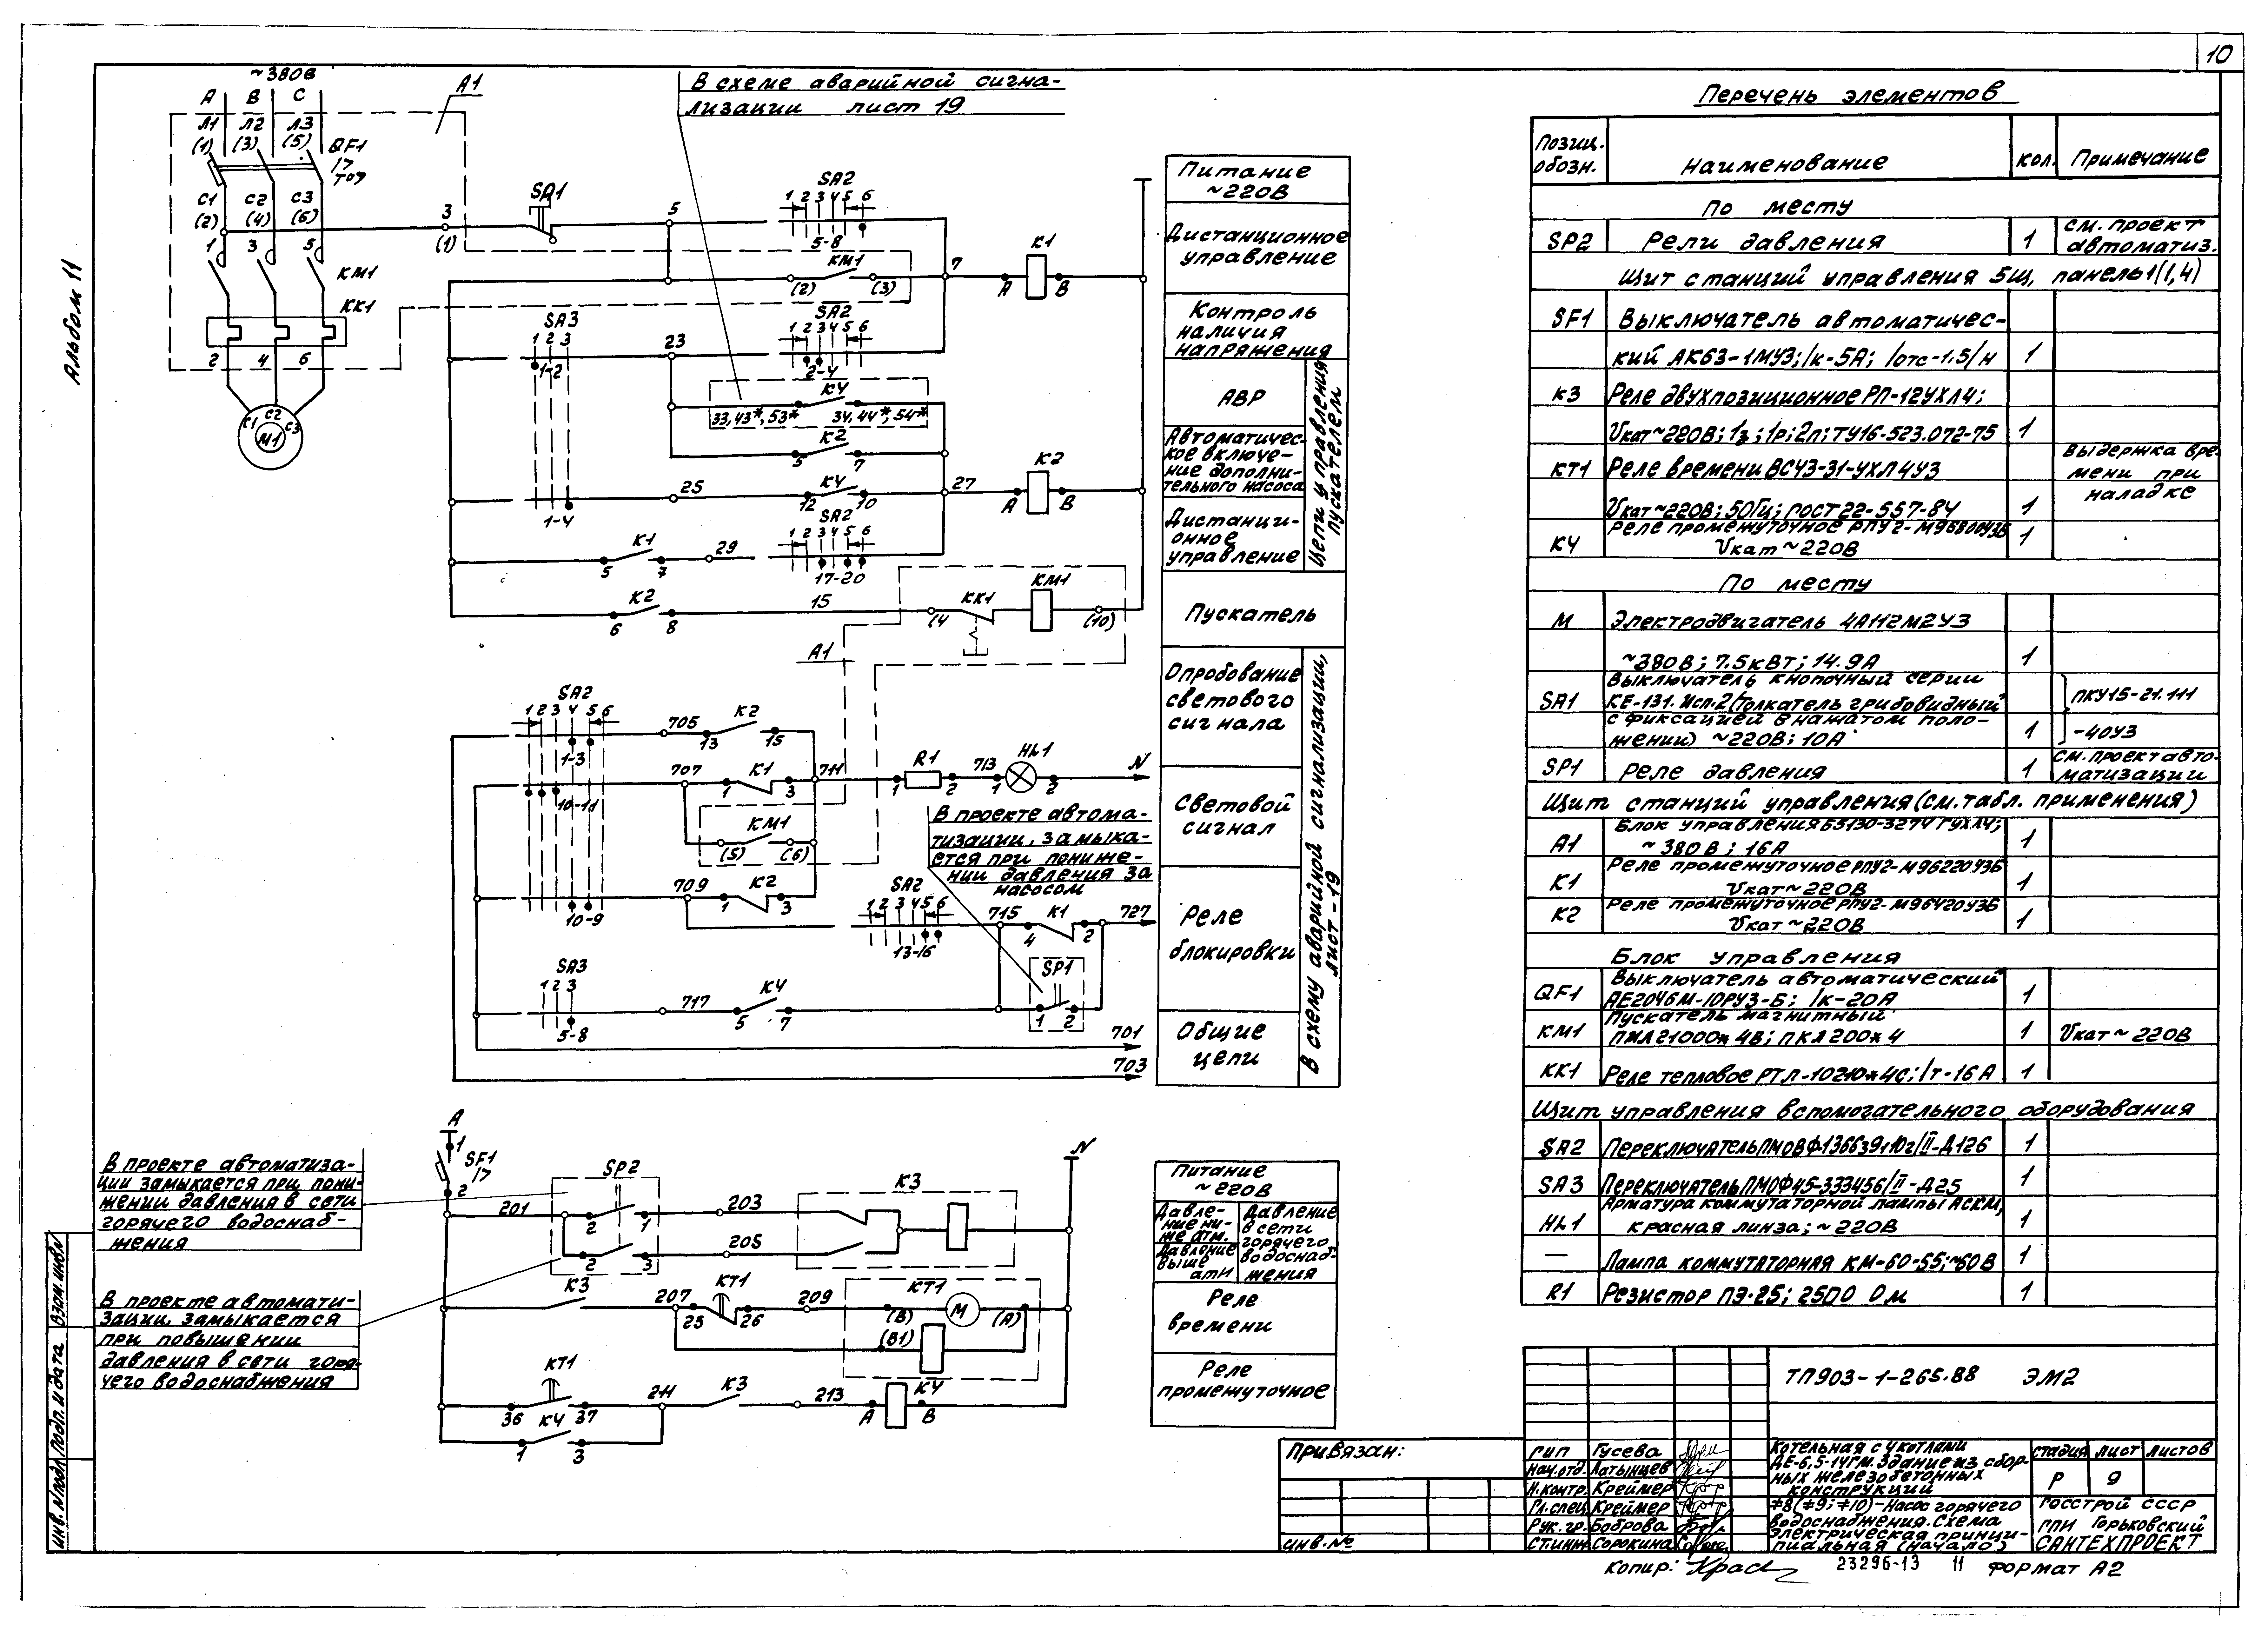 10
Альбом 11
~380В
А В С
Л1 Л2 Л3
(1) (3) (5)
QF1
I>
ТОУ
С1 С2 С3
(2) (4) (6)
1 3 5
КМ1
КК1
2 4 6
С1 С2 С3
М1
А1
В схеме аварийной сигна-
лизации лист 19
3
(1)
SA1
5
SA2
1 2 3 4 5 6
5-8
КМ1
(2) (3)
7
К1
А В
SA3
1 2 3
1-2
23
SA2
1 2 3 4 5 6
2-4
К4
33,43*,53* 34,44*,54*
К2
5 7
1-4
25
К4
12 10
27
К2
А В
SA2
К1
5 7
29
17-20
К2
6 8
15
(4
КК1
КМ1
(10)
А1
Питание
~220В
Дистанционное
управление
Контроль
наличия
напряжения
АВР
Автоматичес-
кое включе-
ние дополни-
тельного насоса
Дистанци-
онное
управление
Цепи управления
пускателем
Пускатель
Опробование
светового
сигнала
Световой
сигнал
Реле
блокировки
Общие
цепи
В схему аварийной сигнализации,
лист-19
SA2
1 2 3 4 5 6
705
К2
13 15
1-3
707
К1
1 3
711
R1
1 2
713
HL1
1 2
N
10-11
КМ1
(5) (6)
В проекте автома-
тизации, замыка-
ется при пониже-
нии давления за
насосом
709
К2
1 3
10-9
SA2
1 2 3 4 5 6
13-16
715
К1
4 2
727
SP1
1 2
SA3
1 2 3
5-8
717
К4
5 7
701
703
А
1
SF1
I>
2
В проекте автоматиза-
ции замыкается при пони-
жении давления в сети
горячего водоснаб-
жения
В проекте автомати-
зации, замыкается
при повышении
давления в сети горя-
чего водоснабжения
201
SP2
2 1
2 3
203
205
К3
N
К3
207
КТ1
25 26
209
КТ1
(В) М (А)
(В1)
КТ1
36 37
К4
1 3
211
К3
213
К4
А В
Питание
~220В
Давле-
ние ни-
же атм.
Давление
выше
атм
Давление
в сети
горячего
водоснаб-
жения
Реле
времени
Реле
промежуточное
Перечень элементов
Позиц. обозн. Наименование Кол. Примечание
По месту
SP2 Рели давления 1 См. проект автоматиз.
Щит станций управления 5Щ, панель 1(1,4)
SF1 Выключатель автоматичес-
кий АК63-1МУ3; Iк-5А; Iотс-1.5Iн 1
К3 Реле двухпозиционное РП-12УХЛ4;
Uкат~220В; 1з; 1р; 2п; ТУ16-523.072-75 1
КТ1 Реле времени ВС43-31-УХЛ4У3 Выдержка вре-
мени при
Uкат~220В; 50Гц; ГОСТ 22-557-84 1 наладке
К4 Реле промежуточное РПУ2-М96800У3Б 1
Uкат~220В
По месту
М Электродвигатель 4А112М2У3
~380В; 7.5кВт; 14.9А 1
SA1 Выключатель кнопочный серии
КЕ-131. Исп.2 (Толкатель грибовидный ПКУ15-21.111
с фиксацией в нажатом поло-
жении) ~220В; 10А 1 -40У3
SP1 Реле давления 1 См. проект авто-
матизации
Щит станций управления (см. табл. применения)
А1 Блок управления Б5130-3274ГУХЛ4; 1
~380В; 16А
К1 Реле промежуточное РПУ2-М96220У3Б 1
Uкат~220В
К2 Реле промежуточное РПУ2-М96420У3Б 1
Uкат~220В
Блок управления
QF1 Выключатель автоматический
АЕ2046М-10РУ3-Б; Iк-20А 1
КМ1 Пускатель магнитный
ПМЛ21000*4В; ПКЛ200*4 1 Uкат~220В
КК1 Реле тепловое РТЛ-10210*4С; Iт-16А 1
Щит управления вспомогательного оборудования
SA2 Переключатель ПМОВФ-136639410г/II-Д126 1
SA3 Переключатель ПМОФ45-333456/II-Д25 1
HL1 Арматура коммутаторной лампы АСКМ,
красная линза; ~220В 1
— Лампа коммутаторная КМ-60-55; ~60В 1
R1 Резистор ПЭ-25; 2500 Ом 1
ТП903-1-265.88 ЭМ2
Привязан:
инв. №
ГИП Гусева
Нач.отд. Латынцев
Н.контр. Креймер
Гл.спец. Креймер
Рук.гр. Боброва
Ст.инж Сорокина
Котельная с 4 котлами
ДЕ-6,5-14ГМ. Здание из сбор-
ных железобетонных
конструкций
Стадия Лист Листов
Р 9
≠8(≠9; ≠10)-Насос горячего
водоснабжения. Схема
электрическая принци-
пиальная (начало)
Госстрой СССР
ГПИ Горьковский
САНТЕХПРОЕКТ
Копир:
23296-13 11 Формат А2
Инв. N подл. Подп. и дата Взам. инв N